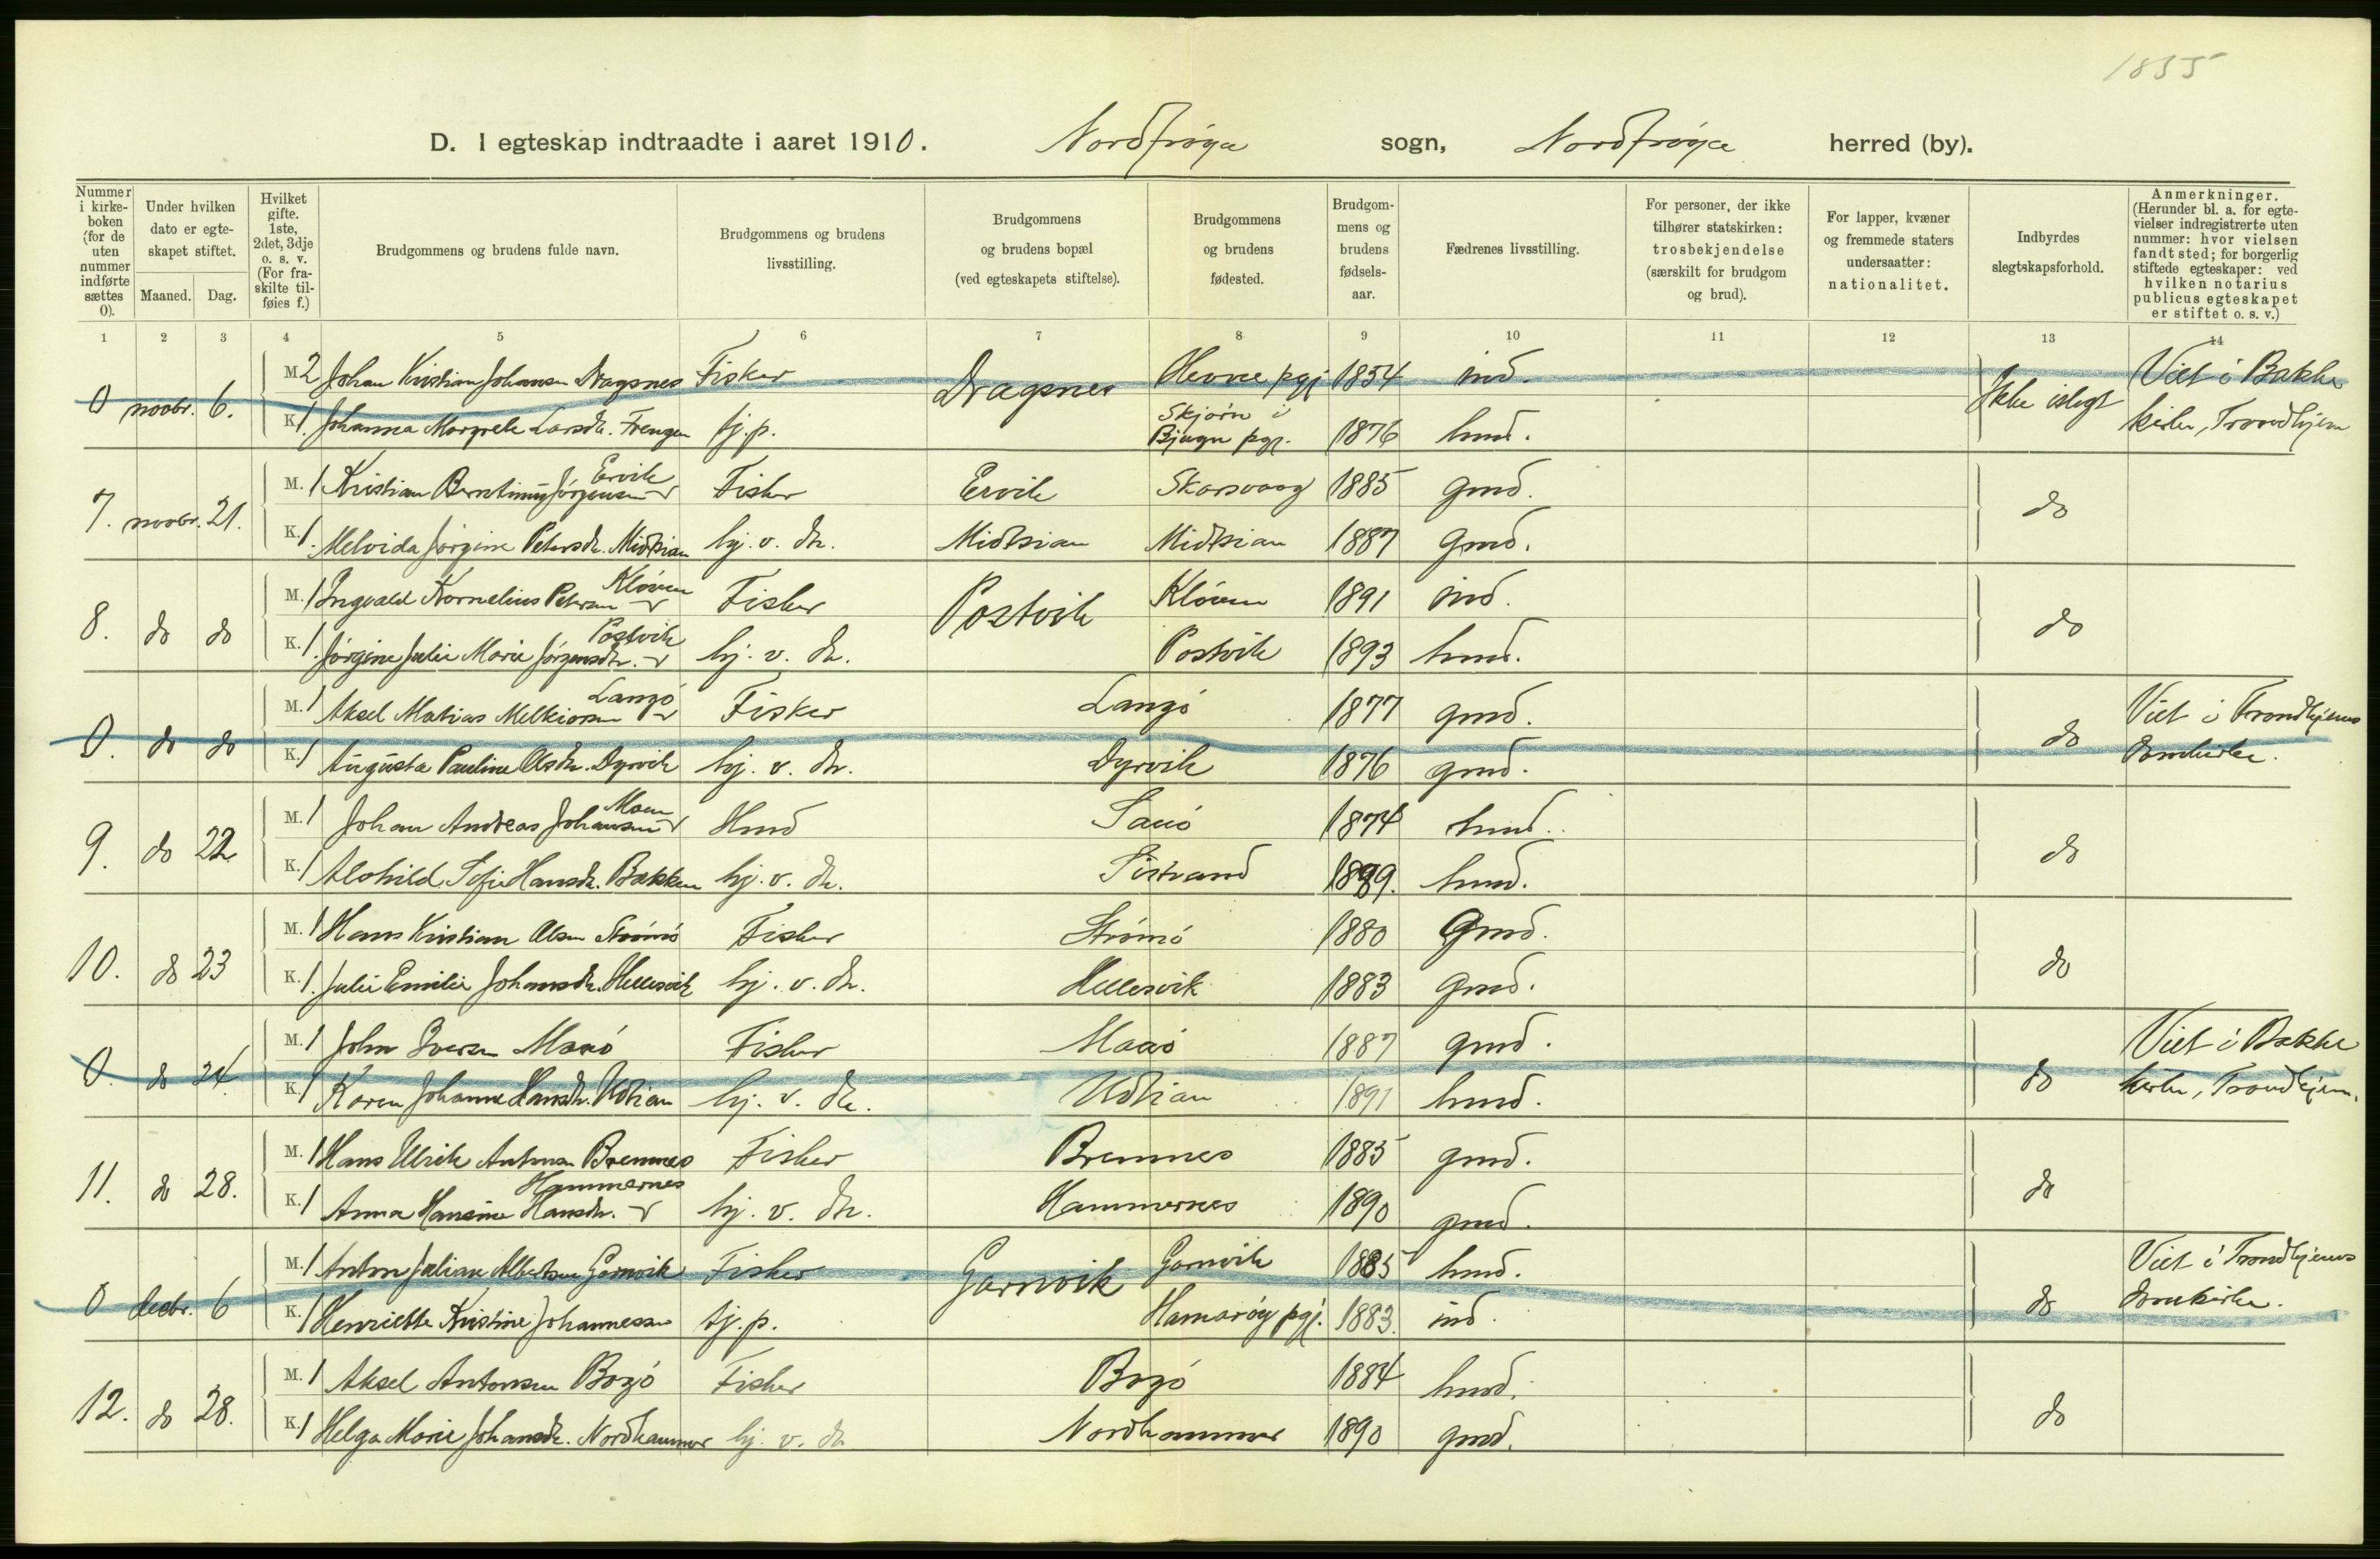 1855
D. I egteskap indtraadte i aaret 1910. Nordfrøya sogn, Nordfrøya herred (by).
Nummer i kirke-boken (for de uten nummer indførte sættes 0).
Under hvilken dato er egte-skapet stiftet.
Maaned. Dag.
Hvilket gifte. 1ste, 2det, 3dje o. s. v. (For fra-skilte til-føies f.)
Brudgommens og brudens fulde navn.
Brudgommens og brudens livsstilling.
Brudgommens og brudens bopæl (ved egteskapets stiftelse).
Brudgommens og brudens fødested.
Brudgom-mens og brudens fødsels-aar.
Fædrenes livsstilling.
For personer, der ikke tilhører statskirken: trosbekjendelse (særskilt for brudgom og brud).
For lapper, kvæner og fremmede staters undersaatter: nationalitet.
Indbyrdes slegtskapsforhold.
Anmerkninger. (Herunder bl. a. for egte-vielser indregistrerte uten nummer: hvor vielsen fandt sted; for borgerlig stiftede egteskaper: ved hvilken notarius publicus egteskapet er stiftet o. s. v.)
1 2 3 4 5 6 7 8 9 10 11 12 13 14
0 novbr. 6. M. 2 Johan Kristian Johansen Dragsnes Fisker Dragsnes Hevne pgj 1854 ind. Ikke i slegt Viet i Bakke
K. 1. Johanna Margrete Larsdr. Frengen tj. p. Skjørn i Bjugn pgj. 1876 husm. kirke, Trondhjem
7. novbr. 21. M. 1 Kristian Berntinus Jørgensen Ervik Fisker Ervik Skarsvaag 1885 gmd. do
K. 1. Melvida Jørgine Petersdr. Midtsian hj. v. dr. Midtsian Midtsian 1887 gmd.
8. do do M. 1 Ingvald Kornelius Petersen Kløven Fisker Postvik Kløven 1891 ind. do
K. 1. Jørgine Julie Marie Jørgensdr. Postvik hj. v. dr. Postvik 1893 husm.
0. do do M. 1 Aksel Matias Melkiorsen Langø Fisker Langø 1877 gmd. do Viet i Trondhjems
K. 1 Augusta Pauline Olsdr. Dyrvik hj. v. dr. Dyrvik 1876 gmd. domkirke.
9. do 22 M. 1 Johan Andreas Johansen Moen Husm Sauø 1874 husm. do
K. 1 Alvhild Sofie Hansdr. Bakken hj. v. dr. Sistrand 1889. husm.
10. do 23 M. 1 Hans Kristian Olsen Strømø Fisker Strømø 1880 Gmd. do
K. 1. Julie Emilie Johansdr. Hellesvik hj. v. dr. Hellesvik 1883 gmd.
0. do 24. M. 1 John Iversen Maaø Fisker Maaø 1887 gmd. do Viet i Bakke
K. 1 Karen Johanne Hansdr. Udtian hj. v. dr. Udtian 1891 husm. kirke, Trondhjem.
11. do 28. M. 1 Hans Ulrik Antonsen Bremnes Fisker Bremnes 1885 gmd. do
K. 1 Anna Hansine Hansdr. Hammernes hj. v. dr. Hammernes 1890 gmd.
0 decbr. 6 M. 1 Anton Julian Albertsen Garnvik Fisker Garnvik Garnvik 1885 husm. do Viet i Trondhjems
K. 1 Henriette Kristine Johannessen tj. p. Hamarøy pgj. 1883. ind. domkirke.
12. do 28. M. 1 Aksel Antonsen Bogø Fisker Bogø 1884 husm. do
K. 1 Helga Marie Johansdr. Nordhammer hj. v. dr Nordhammer 1890 gmd.